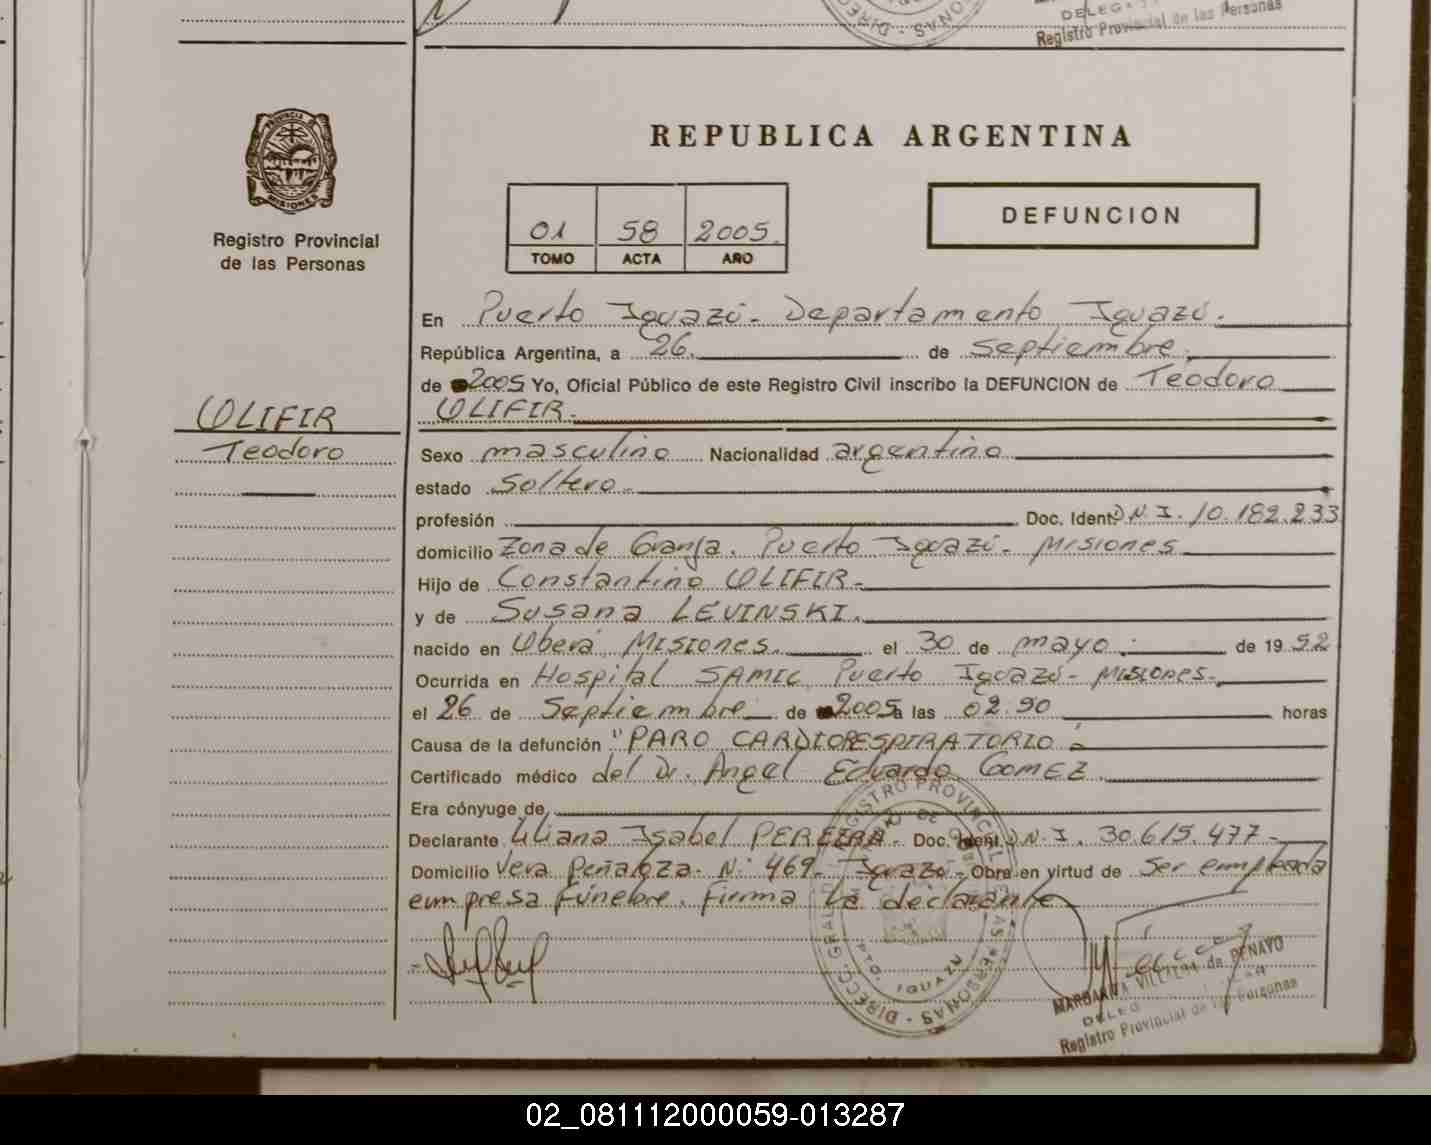 DELEG
Registro Provincial de las Personas
PROVINCIA DE
MISIONES
Registro Provincial
de las Personas
REPUBLICA ARGENTINA
01 58 2005
TOMO ACTA AÑO
DEFUNCION
En Puerto Iguazú - Departamento Iguazú.
República Argentina, a 26. de Septiembre
de 2005 Yo, Oficial Público de este Registro Civil inscribo la DEFUNCION de Teodoro
OLIFIR.
OLIFIR
Teodoro
Sexo masculino Nacionalidad argentino
estado Soltero
profesión Doc. Ident. D.N.I. 10.182.233
domicilio Zona de Granja. Puerto Iguazú - Misiones
Hijo de Constantino OLIFIR
y de Susana LEVINSKI.
nacido en Oberá Misiones. el 30 de mayo de 1952
Ocurrida en Hospital SAMIC Puerto Iguazú - Misiones.
el 26 de Septiembre de 2005 a las 02.50 horas
Causa de la defunción "PARO CARDIORESPIRATORIO
Certificado médico del Dr. Angel Eduardo GOMEZ
Era cónyuge de
Declarante Liliana Isabel PEREIRA. Doc. Ident. D.N.I. 30.615.477-
Domicilio Vera Peñaloza N: 469 - Iguazú - Obra en virtud de Ser empleada
empresa fúnebre. Firma la declarante
REGISTRO PROVINCIAL DE LAS PERSONAS - DIRECC. GRAL.
PTO. IGUAZU
MARGARITA VILLALBA de PENAYO
DELEG
Registro Provincial de las Personas
02_081112000059-013287